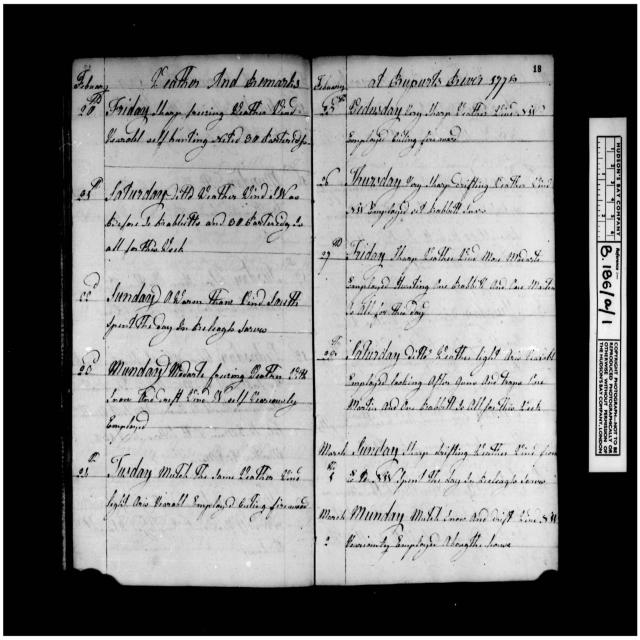 February Weather And Remarks
20th Friday Sharp freezing Weather Wind
Varable self hunting Kiled 30 Partridges
21st Saturday ditto Weather Wind SW as
Before 12 Rabbitts and 30 Partridges Is
all for this Week
22d Sunday A Warm Thaw Wind South
Spent The Day In Releagle Sarves
23d Munday Modarte freezing Weather With
Snow And Drift Wind N self Vereously
Employed
24th Tusday Mutch The Same Weather Wind
light Airs Varabl Employed Cuting firewood
18
February at Ruperts Rever 1776
25th Wedusday Very Sharp Weather Wind NW
Employed Cuting firewood
26 Thursday Very Sharp drifting Weather Wind
NW Employed set Rabbitt Snars
27th Friday Sharp Weather Wind More Modarte
Employed Hunting One Rabbitt And One Martin
Is All for this Day
28th Saturday ditto Weather light Airs Variabl
Employed looking After Guns And traps One
Martin And One Rabbitt Is All for this Week
March Sunday Sharp drifting Weather Wind from
1 to NW Spent the Day In Releagle Sarves
March Munday Mutch Snow And drift Wind NW
2 Variously Employed About the house
HUDSON'S BAY COMPANY
Reference :—
B. 186/a/1
COPYRIGHT PHOTOGRAPH—NOT TO BE
REPRODUCED PHOTOGRAPHICALLY OR
OTHERWISE WITHOUT PERMISSION OF
THE HUDSON'S BAY COMPANY, LONDON